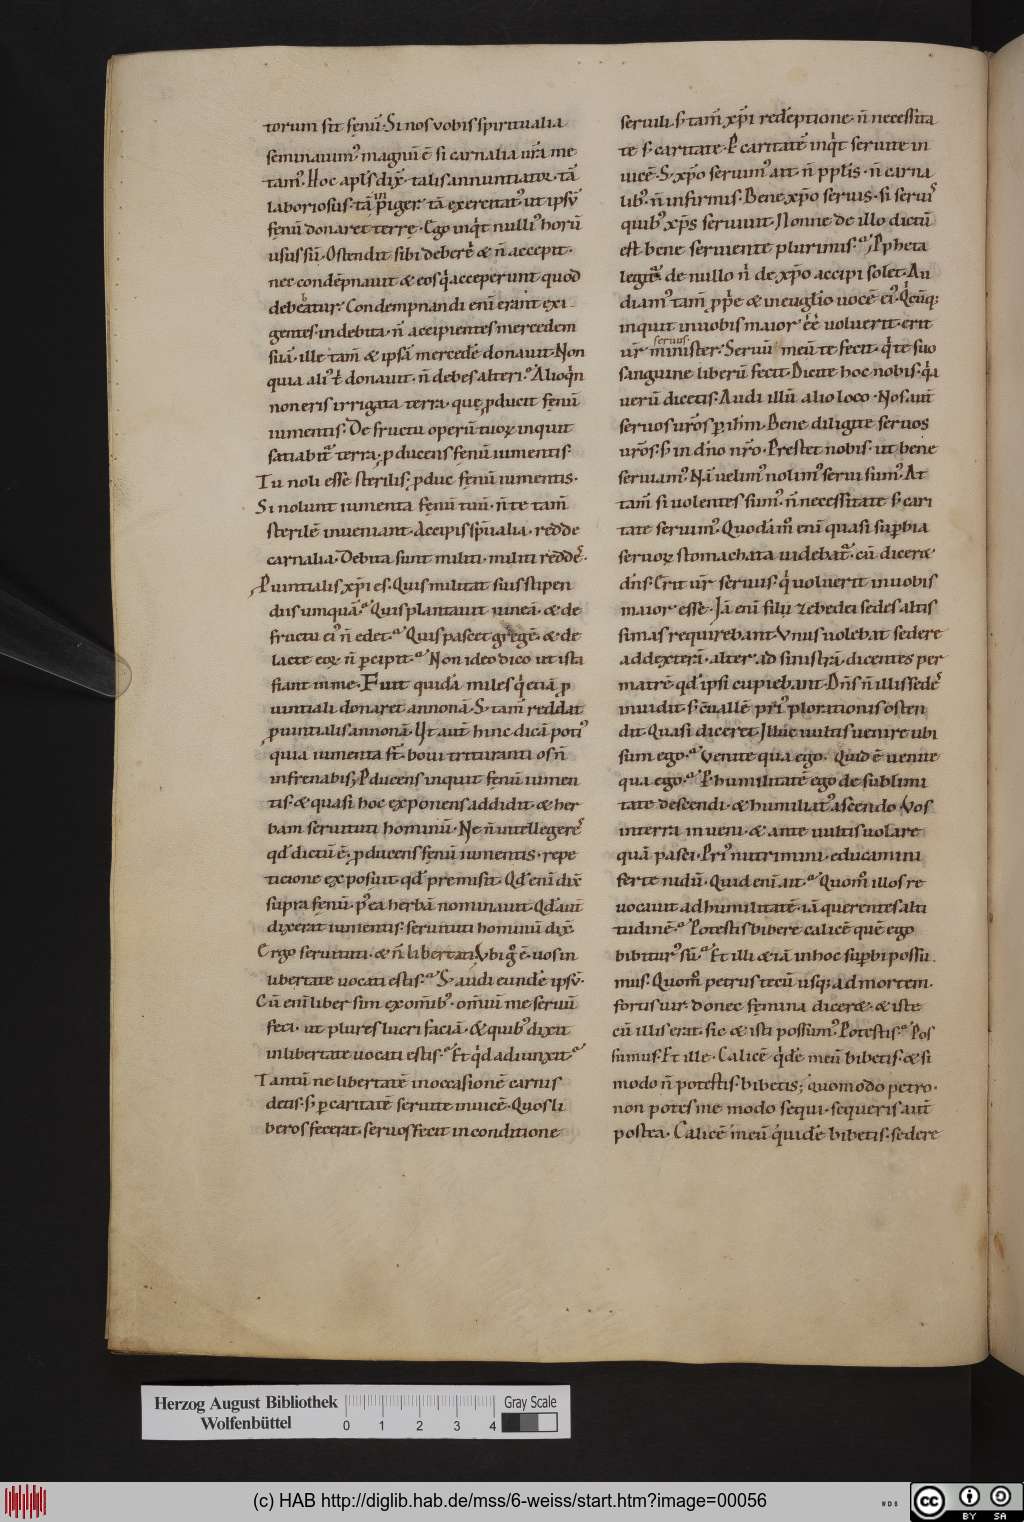 torum sit fęnū. Si nos vobis spiritualia
seminauim᾽ magnū ē si carnalia ur̄a me
tam᾽. Hoc apl̄s dix̄. talis annuntiator. tā
laboriosus. tā inpiger. tā exercitat᾽ ut ipsū
fęnū donaret terrę. Ego inq̍t nulli᾽ horū
usus sū. Ostendit sibi deberē & n̄ accepit.
nec condēpnauit & eos q̍ acceperunt quod
debeatur. Condempnandi enī erant exi
gentes indebita. n̄ accipientes mercedem
suā. ille tam̄ & ipsā mercedē donauit. Non
quia ali᾽ t̍ donauit. n̄ debes alteri. Alioq̍n
non eris irrigata terra. quę ꝓducit fęnū
iumentis. De fructu operū tuoꝝ inquit
satiabit᾽ terra. ꝓducens fęnū iumentis.
Tu noli esse sterilis. ꝓduc fęnū iumentis.
Si nolunt iumenta fęnū tuū. n̄ te tam̄
sterilē inueniant. Accipis sp̄ualia. redde
carnalia. Debita sunt militi. militi reddē.
Puintialis xp̄i es. Quis militat suis stipen
diis umquā. Quis plantauit uineā. & de
fructu ei᾽ n̄ edet. Quis pascet gregē. & de
lacte eoꝝ n̄ ꝑcipit. Non ideo dico ut ista
fiant in me. Fuit quidā miles q̍ etiā ꝓ
uintiali donaret annonā. S; tam̄ reddat
ꝓuintialis annonā. Ut aut̄ hinc dicā poti᾽
quia iumenta st̄. boui trituranti os n̄
infrenabis. Pducens inquit fęnū iumen
tis. & quasi hoc exponens addidit. & her
bam seruituti hominū. Ne n̄ intellegerē
qd̄ dictū ē. ꝓducens fęnū iumentis. repe
ticione exposuit qd̄ premisit. Qd̄ enī dix̄
supra fęnū. p᾽ea herbā nominauit. Qd̄ aut̄
dixerat iumentis. seruituti hominū dix̄.
Ergo seruituti. & n̄ libertati. Vbi g̊ ē. uos in
libertate uocati estis. S; audi eundē ipsū.
Cū enī liber sim ex om̄ib᾽. om̄iū me seruū
feci. ut plures lucri faciā. & quib᾽ dixit
in libertate uocati estis. Et q̍d adiunxit.
Tantū ne libertatē in occasionē carnis
detis. s; ꝑ caritatē seruite inuicē. Quos li
beros fecerat. seruos fecit in conditione
seruili. s; tam̄ xp̄i redēptione. n̄ necessita
te s; caritate. P caritatē inq̍t seruite in
uicē. S; xp̄o seruim᾽ ait. n̄ pp̄lis. n̄ carna
lib᾽. n̄ infirmis. Bene xp̄o seruis. si seruis
quib᾽ xp̄s seruiuit. Nonne de illo dictū
est bene seruiente plurimis. Ppheta
legit᾽. de nullo n̄ de xp̄o accipi solet. Au
diam᾽ tam̄ ꝓp̍e & in euglio uocē ei᾽. Qcūq;
inquit in uobis maior ēē uoluerit. erit
ur̄ minister. Seruū meū te fecit. q̍ te suo
seruos.
sanguine liberū fecit. Dicite hoc nobis. q̍a
uerū dicetis. Audi illū alio loco. Nos aut̄
seruos uros ꝑ ih̄m. Bene diligite seruos
ur̄os. s; in dn̄o nr̄o. Prestet nobis. ut bene
seruiam᾽. Nā uelim᾽ nolim᾽ serui sum᾽. At
tam̄ si uolentes sum᾽. n̄ necessitate s; cari
tate seruim᾽. Quodām enī quasi suꝑbia
seruoꝝ stomachata uidebat᾽. cū diceret
dn̄s. Erit ur̄ seruus. q̍ uoluerit in uobis
maior esse. Jā enī filii zebedei sedes altis
simas requirebant. Vnus uolebat sedere
ad dexterā. alter ad sinistrā. dicentes per
matrē qd̄ ipsi cupiebant. Dn̄s n̄ illis sedē
inuidit. s; cōuallē pri᾽ plorationis osten
dit. Quasi diceret. Illuc uultis uenire ubi
sum ego. Venite qua ego. Quid ē uenite
qua ego. P humilitatē ego de sublimi
tate descendi. & humiliat᾽ ascendo. Vos
in terra inueni. & ante uultis uolare
quā pasci. Pri᾽ nutrimini. educamini
ferte nidū. Quid enī ait. Quom̄ illos re
uocauit ad humilitatē. iā querentes alti
tudinē. Potestis bibere calicē quē ego
bibitur᾽ sū. Et illi & iā in hoc suꝑbi possu
mus. Quom̄ petrus tecū usq; ad mortem.
fortis uir. donec femina diceret. & iste
cū illis erat. sic & isti possum᾽. Potestis. Pos
sumus. Et ille. Calicē q̍dē meū bibetis. & si
modo n̄ potestis. bibetis; quomodo petro.
non potes me modo sequi. sequeris aut̄
postea. Calicē meū quidē bibetis. sedere
Herzog August Bibliothek
Wolfenbüttel
0 1 2 3 4
Gray Scale
(c) HAB http://diglib.hab.de/mss/6-weiss/start.htm?image=00056
WDB
cc BY SA